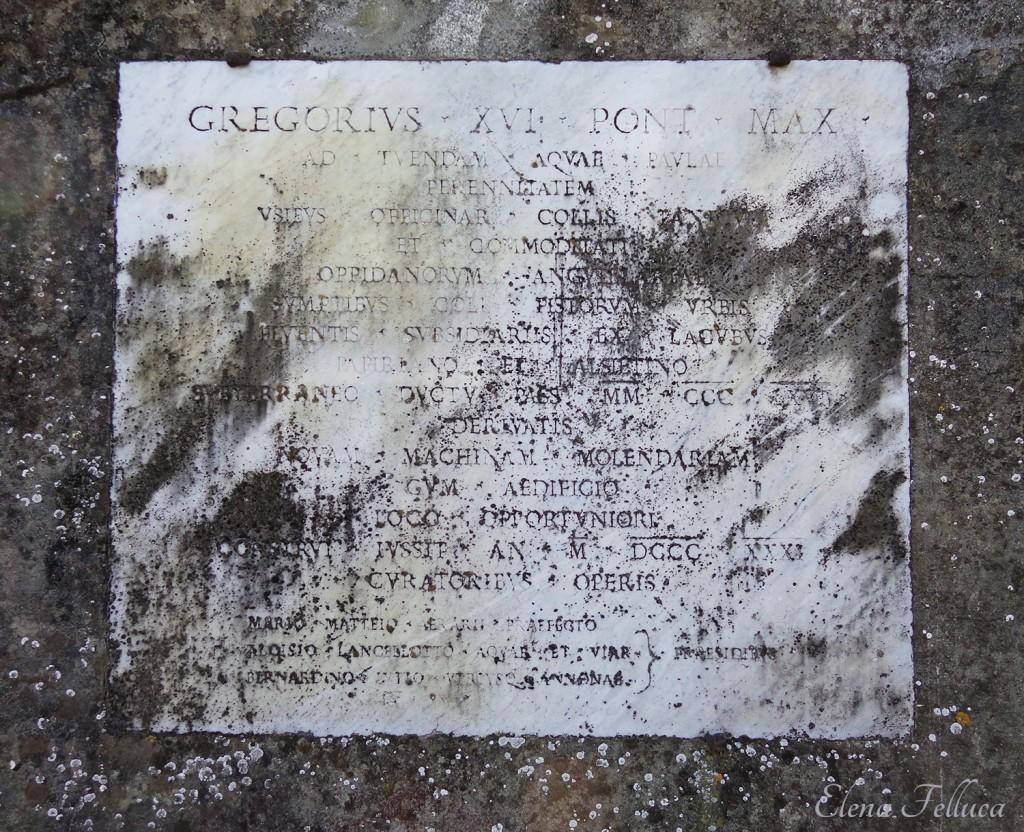 GREGORIVS · XVI · PONT · MAX ·
AD · TVENDAM · AQVAE · PAVLAE
PERENNITATEM
VSIBVS · OFFICINAR · COLLIS
ET · COMMODITATI
OPPIDANORVM
SVMPTIBVS · COLL · PISTORVM · VRBIS
SVBSIDIARIIS · EX · LACVBVS
ET · ALSIETINO
SVBTERRANEO · DVCTV · PAES · MM · CCC
DERIVATIS
NOVAM · MACHINAM · MOLENDARIAM
CVM · AEDIFICIO
LOCO · OPPORTVNIORE
CONSTRVI · IVSSIT · AN · M · DCCC · XXXI
CVRATORIBVS · OPERIS
MARIO · MATTEIO · AERARII · PRAEFECTO
ALOISIO · LANCELLOTTO · AQVAE · ET · VIAR · PRAESIDIBVS
BERNARDINO · ANNONAE
Elena Felluca